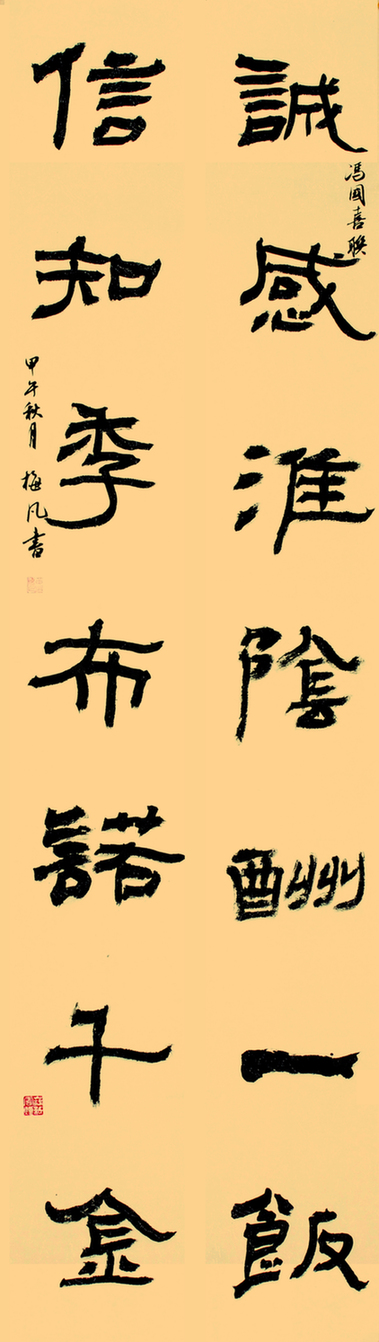 誠感淮陰酬一飯
馮國喜联
信知季布諾千金
甲午秋月 梅凡書